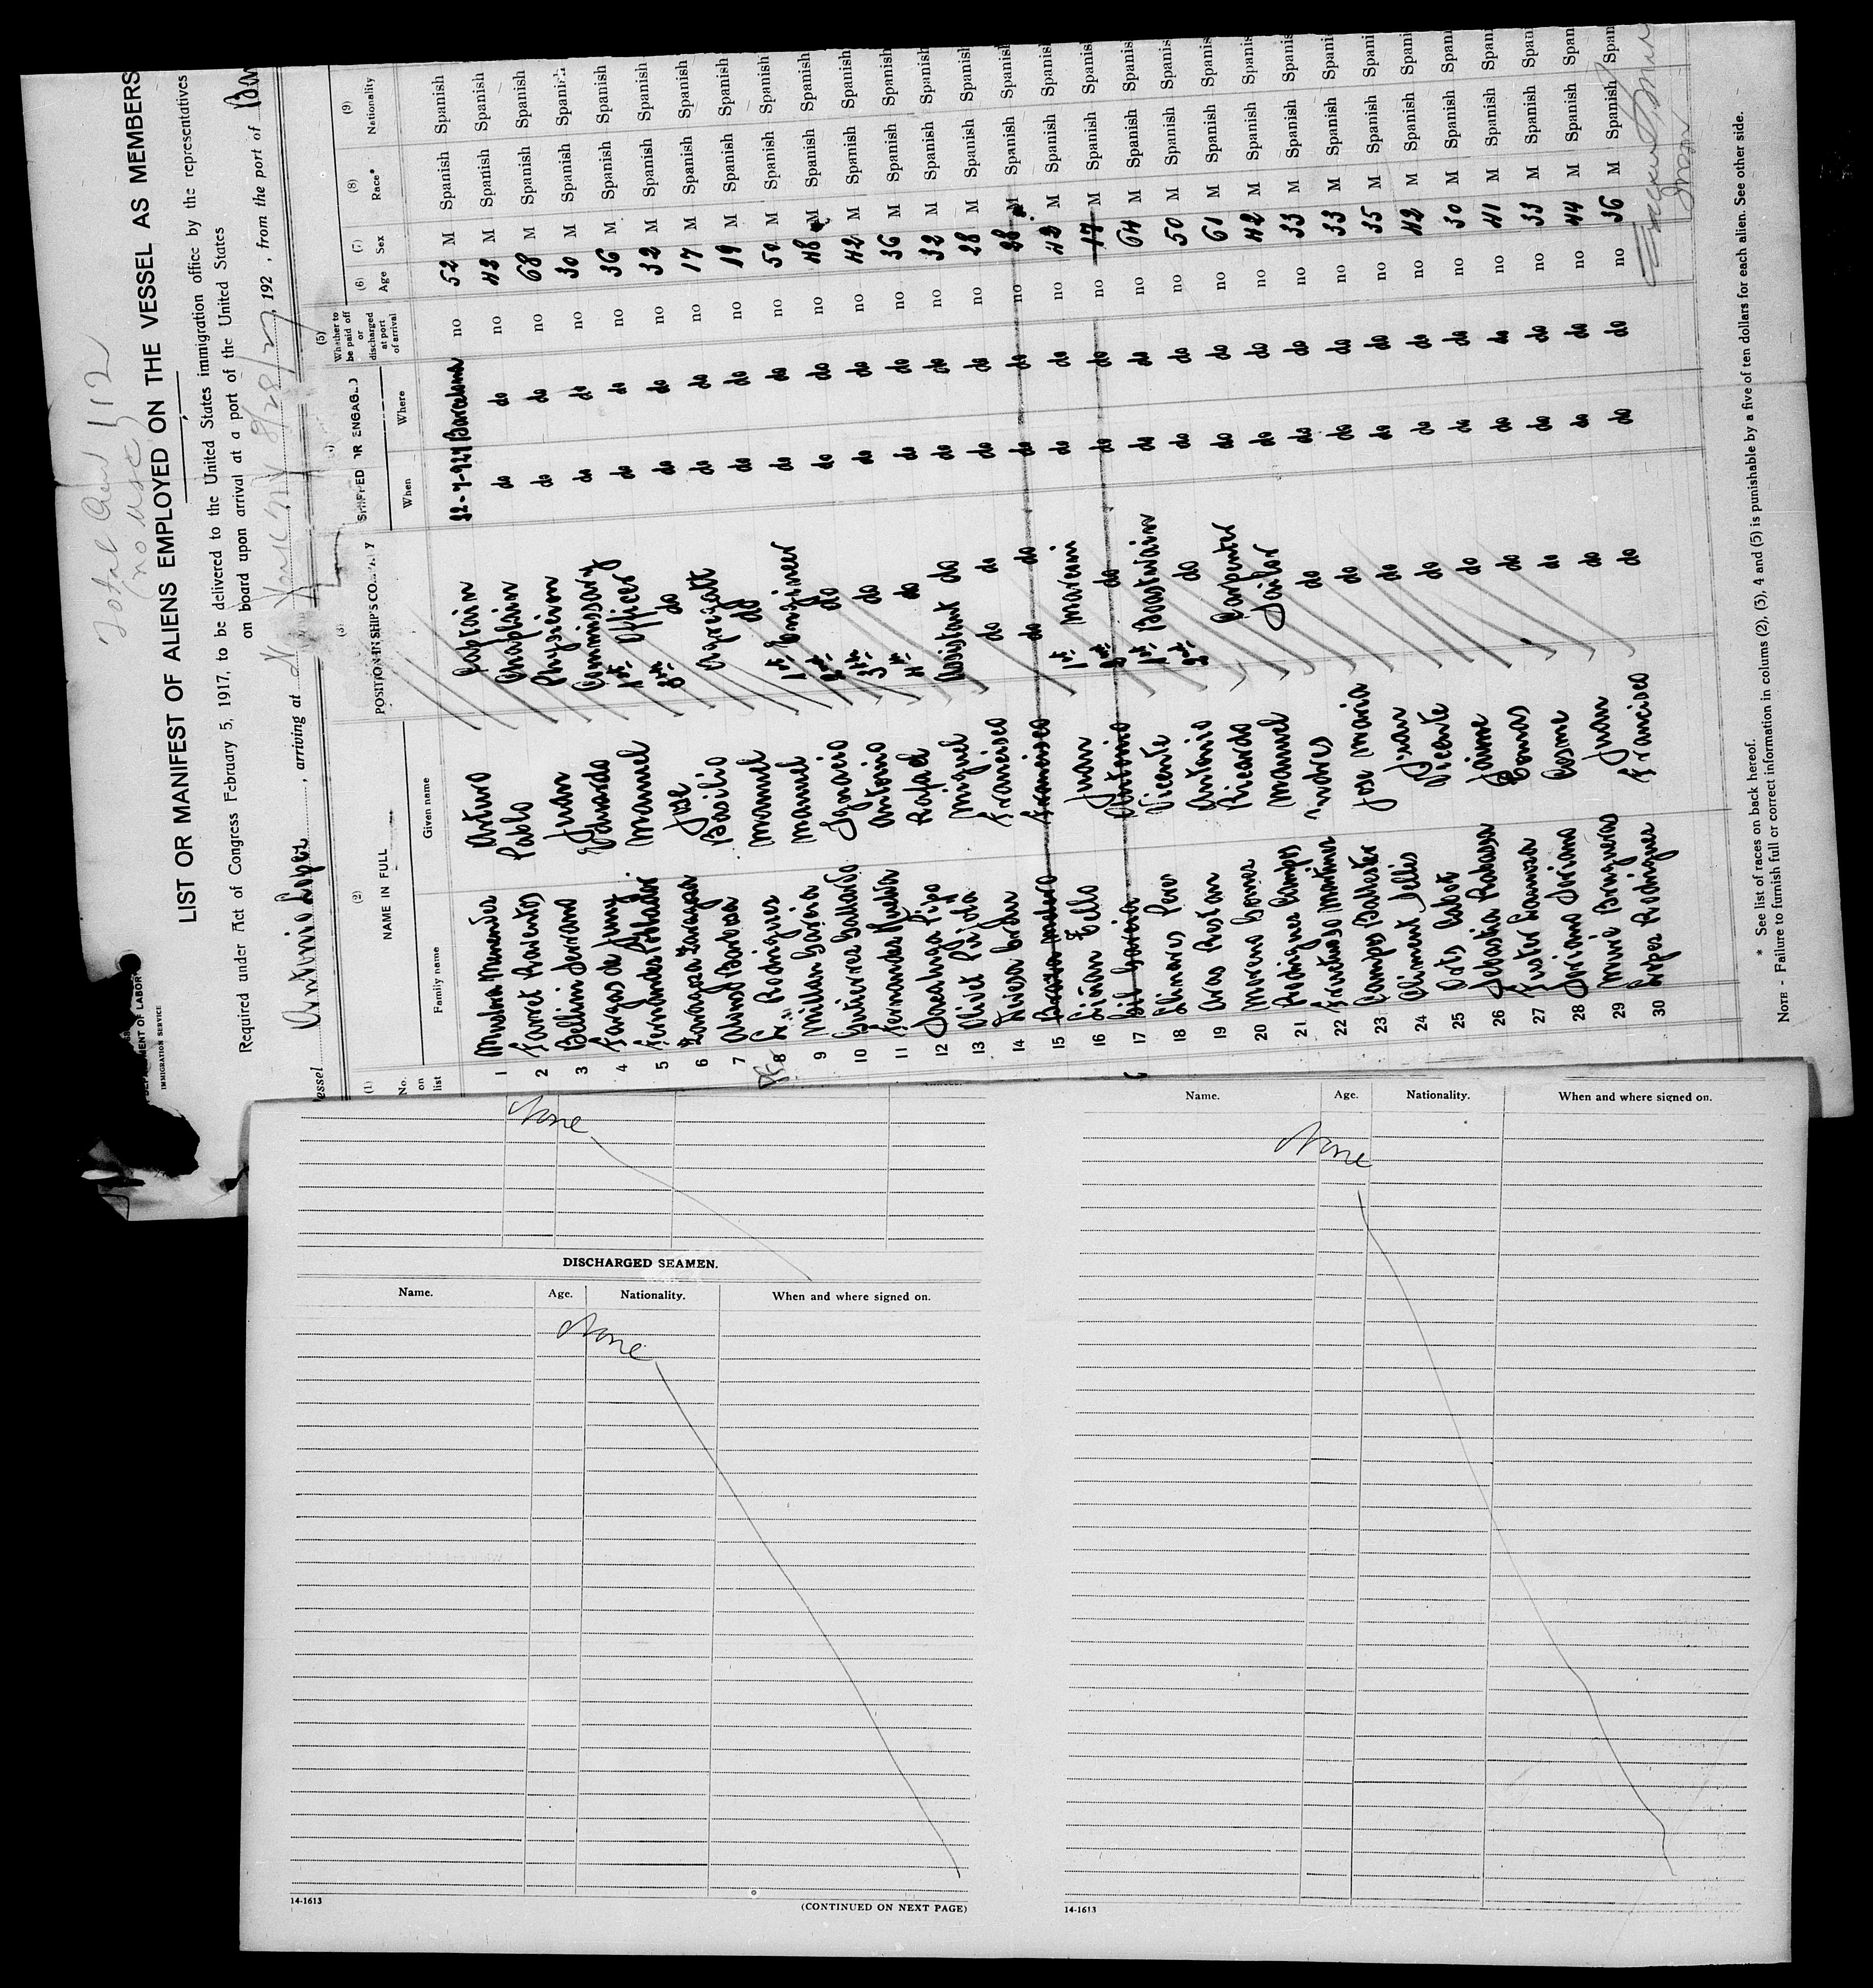 Total Crew 112
(no USC)
DEPARTMENT OF LABOR
IMMIGRATION SERVICE
LIST OR MANIFEST OF ALIENS EMPLOYED ON THE VESSEL AS MEMBERS
Required under Act of Congress February 5, 1917, to be delivered to the United States immigration office by the representatives
on board upon arrival at a port of the United States
essel Antonio Lopez, arriving at 8/28/27, 192 , from the port of
(1) (2) (3) (5) (6) (7) (8) (9)
No. on list NAME IN FULL POSITION IN SHIP'S COMPANY SHIPPED OR ENGAGED Whether to be paid off or discharged at port of arrival Age Sex Race* Nationality
Family name Given name When Where
1 Arturo Captain Barcelona no 52 M Spanish Spanish
2 Farret Raventos Pablo Chaplain do do no 43 M Spanish Spanish
3 Bellini Serrano Juan Physician do do no 68 M Spanish Spanish
4 Fargas de Juny Eduardo Commissary do do no 30 M Spanish Spanish
5 Fernandez Manuel 1st Officer do do no 36 M Spanish Spanish
6 Zaragoza Zaragoza Jose do do do no 32 M Spanish Spanish
7 Barbosa Basilio Agregatt do do no 17 M Spanish Spanish
8 Rodriguez Manuel do do do no 19 M Spanish Spanish
9 Millan Garcia Manuel 1st Enginer do do no 50 M Spanish Spanish
10 Gutierrez Gallardo Ignacio 2nd do do do no 48 M Spanish Spanish
11 Fernandez Rueda Antonio 3th do do do no 42 M Spanish Spanish
12 Pipo Rafael 4th do do do no 36 M Spanish Spanish
13 Olivet Pujola Miguel Assistant do do do no 32 M Spanish Spanish
14 Francisco do do do do no 28 M Spanish Spanish
15 Francisco do do do do no 28 M Spanish Spanish
16 Tello Juan 1st Marcin do do no 42 M Spanish Spanish
17 Gil Garcia Antonio 2nd do do do no 17 M Spanish Spanish
18 Llinares Perez Vicente 1st Boastwain do do no 64 M Spanish Spanish
19 Aras Rostan Antonio 2nd do do do no 50 M Spanish Spanish
20 Moreno Gomez Ricardo Carpenter do do no 61 M Spanish Spanish
21 Rodriguez Campos Manuel Sailor do do no 42 M Spanish Spanish
22 Fructuoso Martinez Andres do do do no 33 M Spanish Spanish
23 Campos Ballester Jose Maria do do do no 33 M Spanish Spanish
24 Climent Selles do do do no 35 M Spanish Spanish
25 Cots Cabot Vicente do do do no 42 M Spanish Spanish
26 Sebastia Rabassa Jaime do do do no 30 M Spanish Spanish
27 Fuster Tomas do do do no 41 M Spanish Spanish
28 Soriano Soriano Cosme do do do no 33 M Spanish Spanish
29 Brungueras Juan do do do no 44 M Spanish Spanish
30 Lopez Rodriguez Francisco do do do no 36 M Spanish Spanish
* See list of races on back hereof.
NOTE - Failure to furnish full or correct information in colums (2), (3), 4 and (5) is punishable by a five of ten dollars for each alien. See other side.
None
DISCHARGED SEAMEN.
Name. Age. Nationality. When and where signed on.
None
14-1613 (CONTINUED ON NEXT PAGE)
Name. Age. Nationality. When and where signed on.
None
14-1613